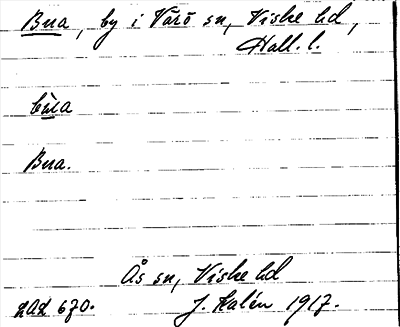 Bua, by i Värö sn, Viske hd,
Hall. l.
bùa
Bua.
Ås sn, Viske hd
J. Kalén 1917.
LAL 670.